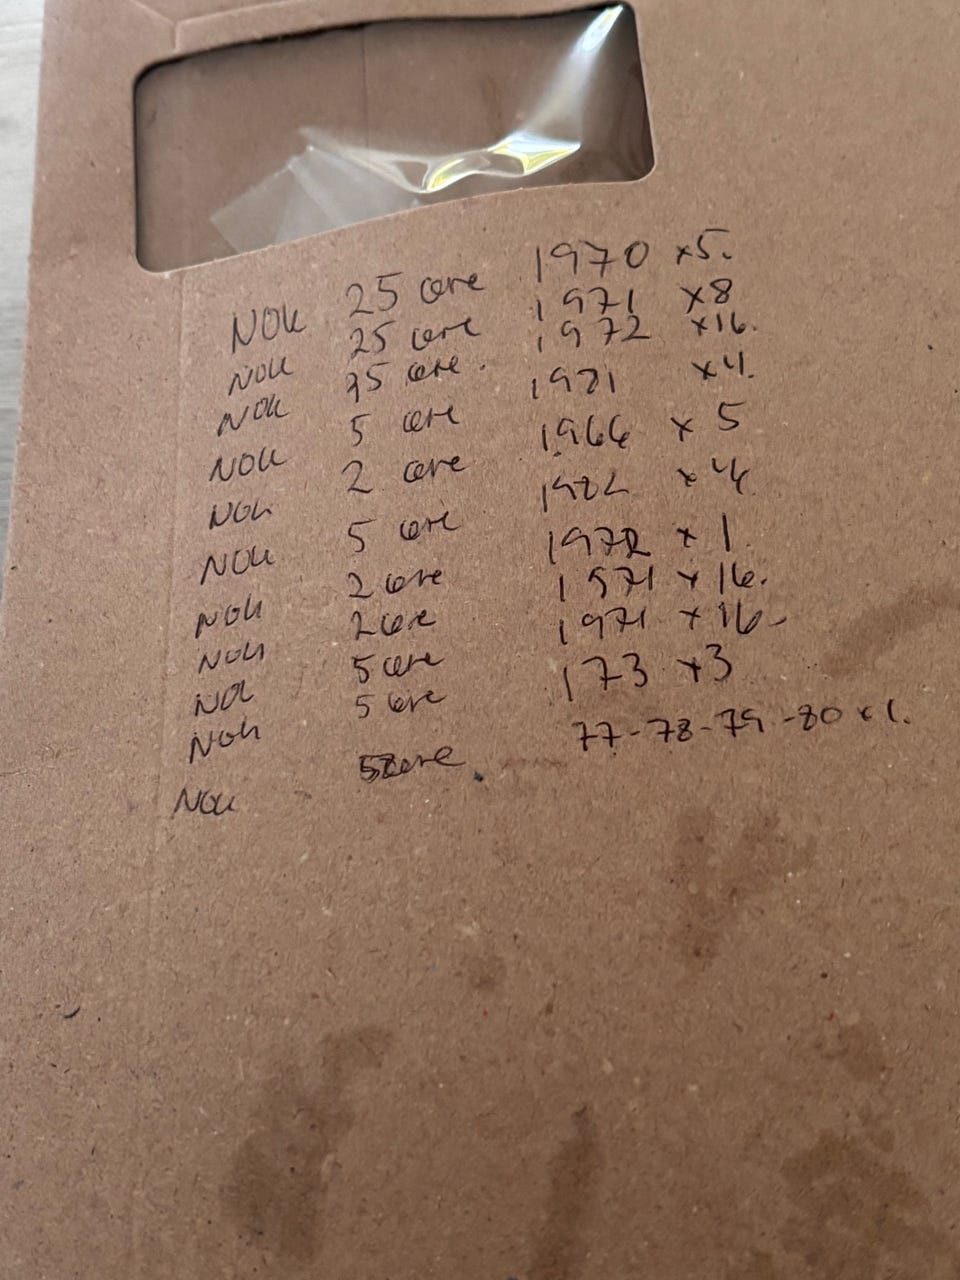 NOK 25 øre 1970 x5.
NOK 25 øre 1971 x8
NOK 25 øre. 1972 x16.
NOK 5 øre 1981 x4.
NOK 2 øre 1966 x 5
NOK 5 øre 1982 x 4
NOK 2 øre 1972 x 1.
NOK 2 øre 1971 x 16.
NOK 5 øre 1971 x 16-
NOK 5 øre 173 x3
NOK 5 øre 77-78-79-80 x1.